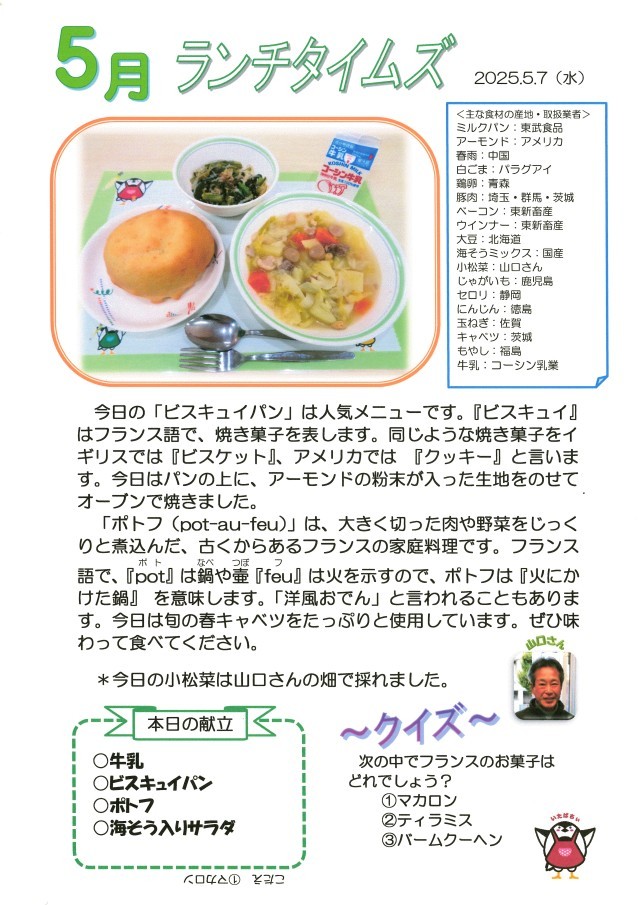 5月 ランチタイムズ 2025.5.7（水）
＜主な食材の産地・取扱業者＞
ミルクパン：東武食品
アーモンド：アメリカ
春雨：中国
白ごま：パラグアイ
鶏卵：青森
豚肉：埼玉・群馬・茨城
ベーコン：東新畜産
ウインナー：東新畜産
大豆：北海道
海そうミックス：国産
小松菜：山口さん
じゃがいも：鹿児島
セロリ：静岡
にんじん：徳島
玉ねぎ：佐賀
キャベツ：茨城
もやし：福島
牛乳：コーシン乳業
コーシン牛乳
KOSHIN MILK
コーシン牛乳
今日の「ビスキュイパン」は人気メニューです。『ビスキュイ』
はフランス語で、焼き菓子を表します。同じような焼き菓子をイ
ギリスでは『ビスケット』、アメリカでは 『クッキー』と言いま
す。今日はパンの上に、アーモンドの粉末が入った生地をのせて
オーブンで焼きました。
「ポトフ（pot-au-feu）」は、大きく切った肉や野菜をじっく
りと煮込んだ、古くからあるフランスの家庭料理です。フランス
ポト なべ つぼ フ
語で、『pot』は鍋や壷『feu』は火を示すので、ポトフは『火にか
けた鍋』 を意味します。「洋風おでん」と言われることもありま
す。今日は旬の春キャベツをたっぷりと使用しています。ぜひ味
わって食べてください。
＊今日の小松菜は山口さんの畑で採れました。
山口さん
本日の献立
○牛乳
○ビスキュイパン
○ポトフ
○海そう入りサラダ
～クイズ～
次の中でフランスのお菓子は
どれでしょう？
①マカロン
②ティラミス
③バームクーヘン
こたえ ①マカロン